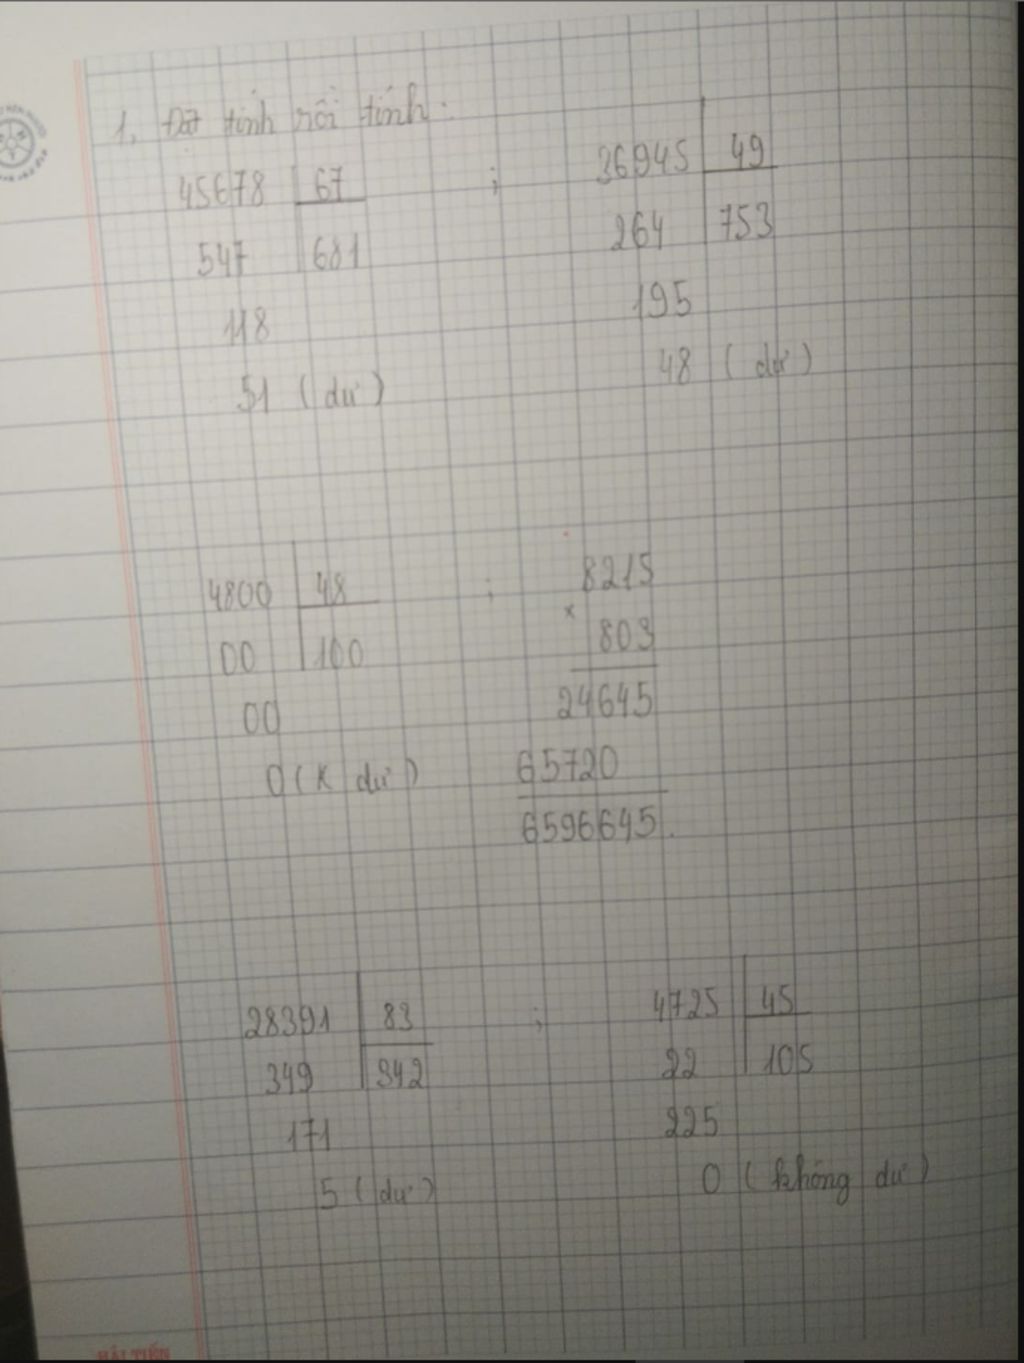 1, Đặt tính rồi tính:
45678 67 ; 36945 49
547 681 264 753
118 195
51 (dư) 48 (dư)
4800 48 ; 8215
00 100 × 803
00 24645
0 (K dư) 65720
6596645.
28391 83 ; 4725 45
349 342 22 105
171 225
5 (dư) 0 (không dư)
HẢI TIẾN